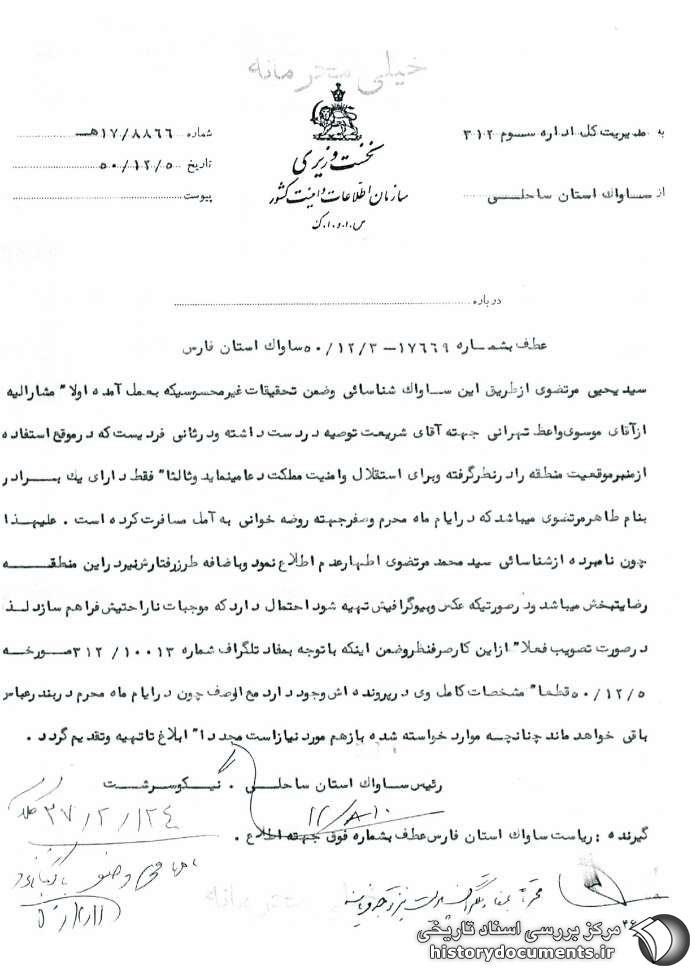 خیلی محرمانه
به مدیریت کل اداره سوم ۳۱۲
از ساواک استان ساحلی
نخست وزیری
سازمان اطلاعات و امنیت کشور
س.ا.و.ا.ک
شماره ۱۷/۸۸۶۶هـ
تاریخ ۵۰/۱۲/۵
پیوست
درباره
عطف بشماره ۱۷۶۶۹-۵۰/۱۲/۳ ساواک استان فارس
سید یحیی مرتضوی ازطریق این ساواک شناسائی وضمن تحقیقات غیرمحسوسیکه بعمل آمده اولا" مشارالیه
ازآقای موسوی واعظ تهرانی جهته آقای شریعت توصیه دردست داشته ودرثانی فردیست که درموقع استفاده
ازمنبرموقعیت منطقه رادرنظرگرفته وبرای استقلال وامنیت مملکت دعامینماید وثالثا" فقط دارای یک بــرادر
بنام طاهرمرتضوی میباشد که درایام ماه محرم وصفرجهته روضه خوانی به آمل مسافرت کرده است . علیهذا
چون نامبرده ازشناسائی سید محمد مرتضوی اظهارعدم اطلاع نمود وباضافه طرزرفتارش نیزدراین منطقــه
رضایتبخش میباشد ودرصورتیکه عکس وبیوگرافیش تهیه شود احتمال داردکه موجبات ناراحتیش فراهم سازدلــذا
درصورت تصویب فعلا" ازاین کارصرفنظروضمن اینکه باتوجه بمفاد تلگراف شماره ۱۰۰۱۳/ ۳۱۲مــورخــه
۵۰/۱۲/۵ قطعا" مشخصات کامل وی درپرونده اش وجود دارد مع الوصف چون درایام ماه محرم دربندرعباس
باقی خواهد ماند چنانچه موارد خواسته شده بازهم مورد نیازاست مجددا" ابلاغ تاتهیه وتقدیم گردد .
رئیس ساواک استان ساحلی . نیکوسرشت
گیرنده : ریاست ساواک استان فارس عطف بشماره فوق جهته اطلاع .
خیلی محرمانه
مرکز بررسی اسناد تاریخی
historydocuments.ir